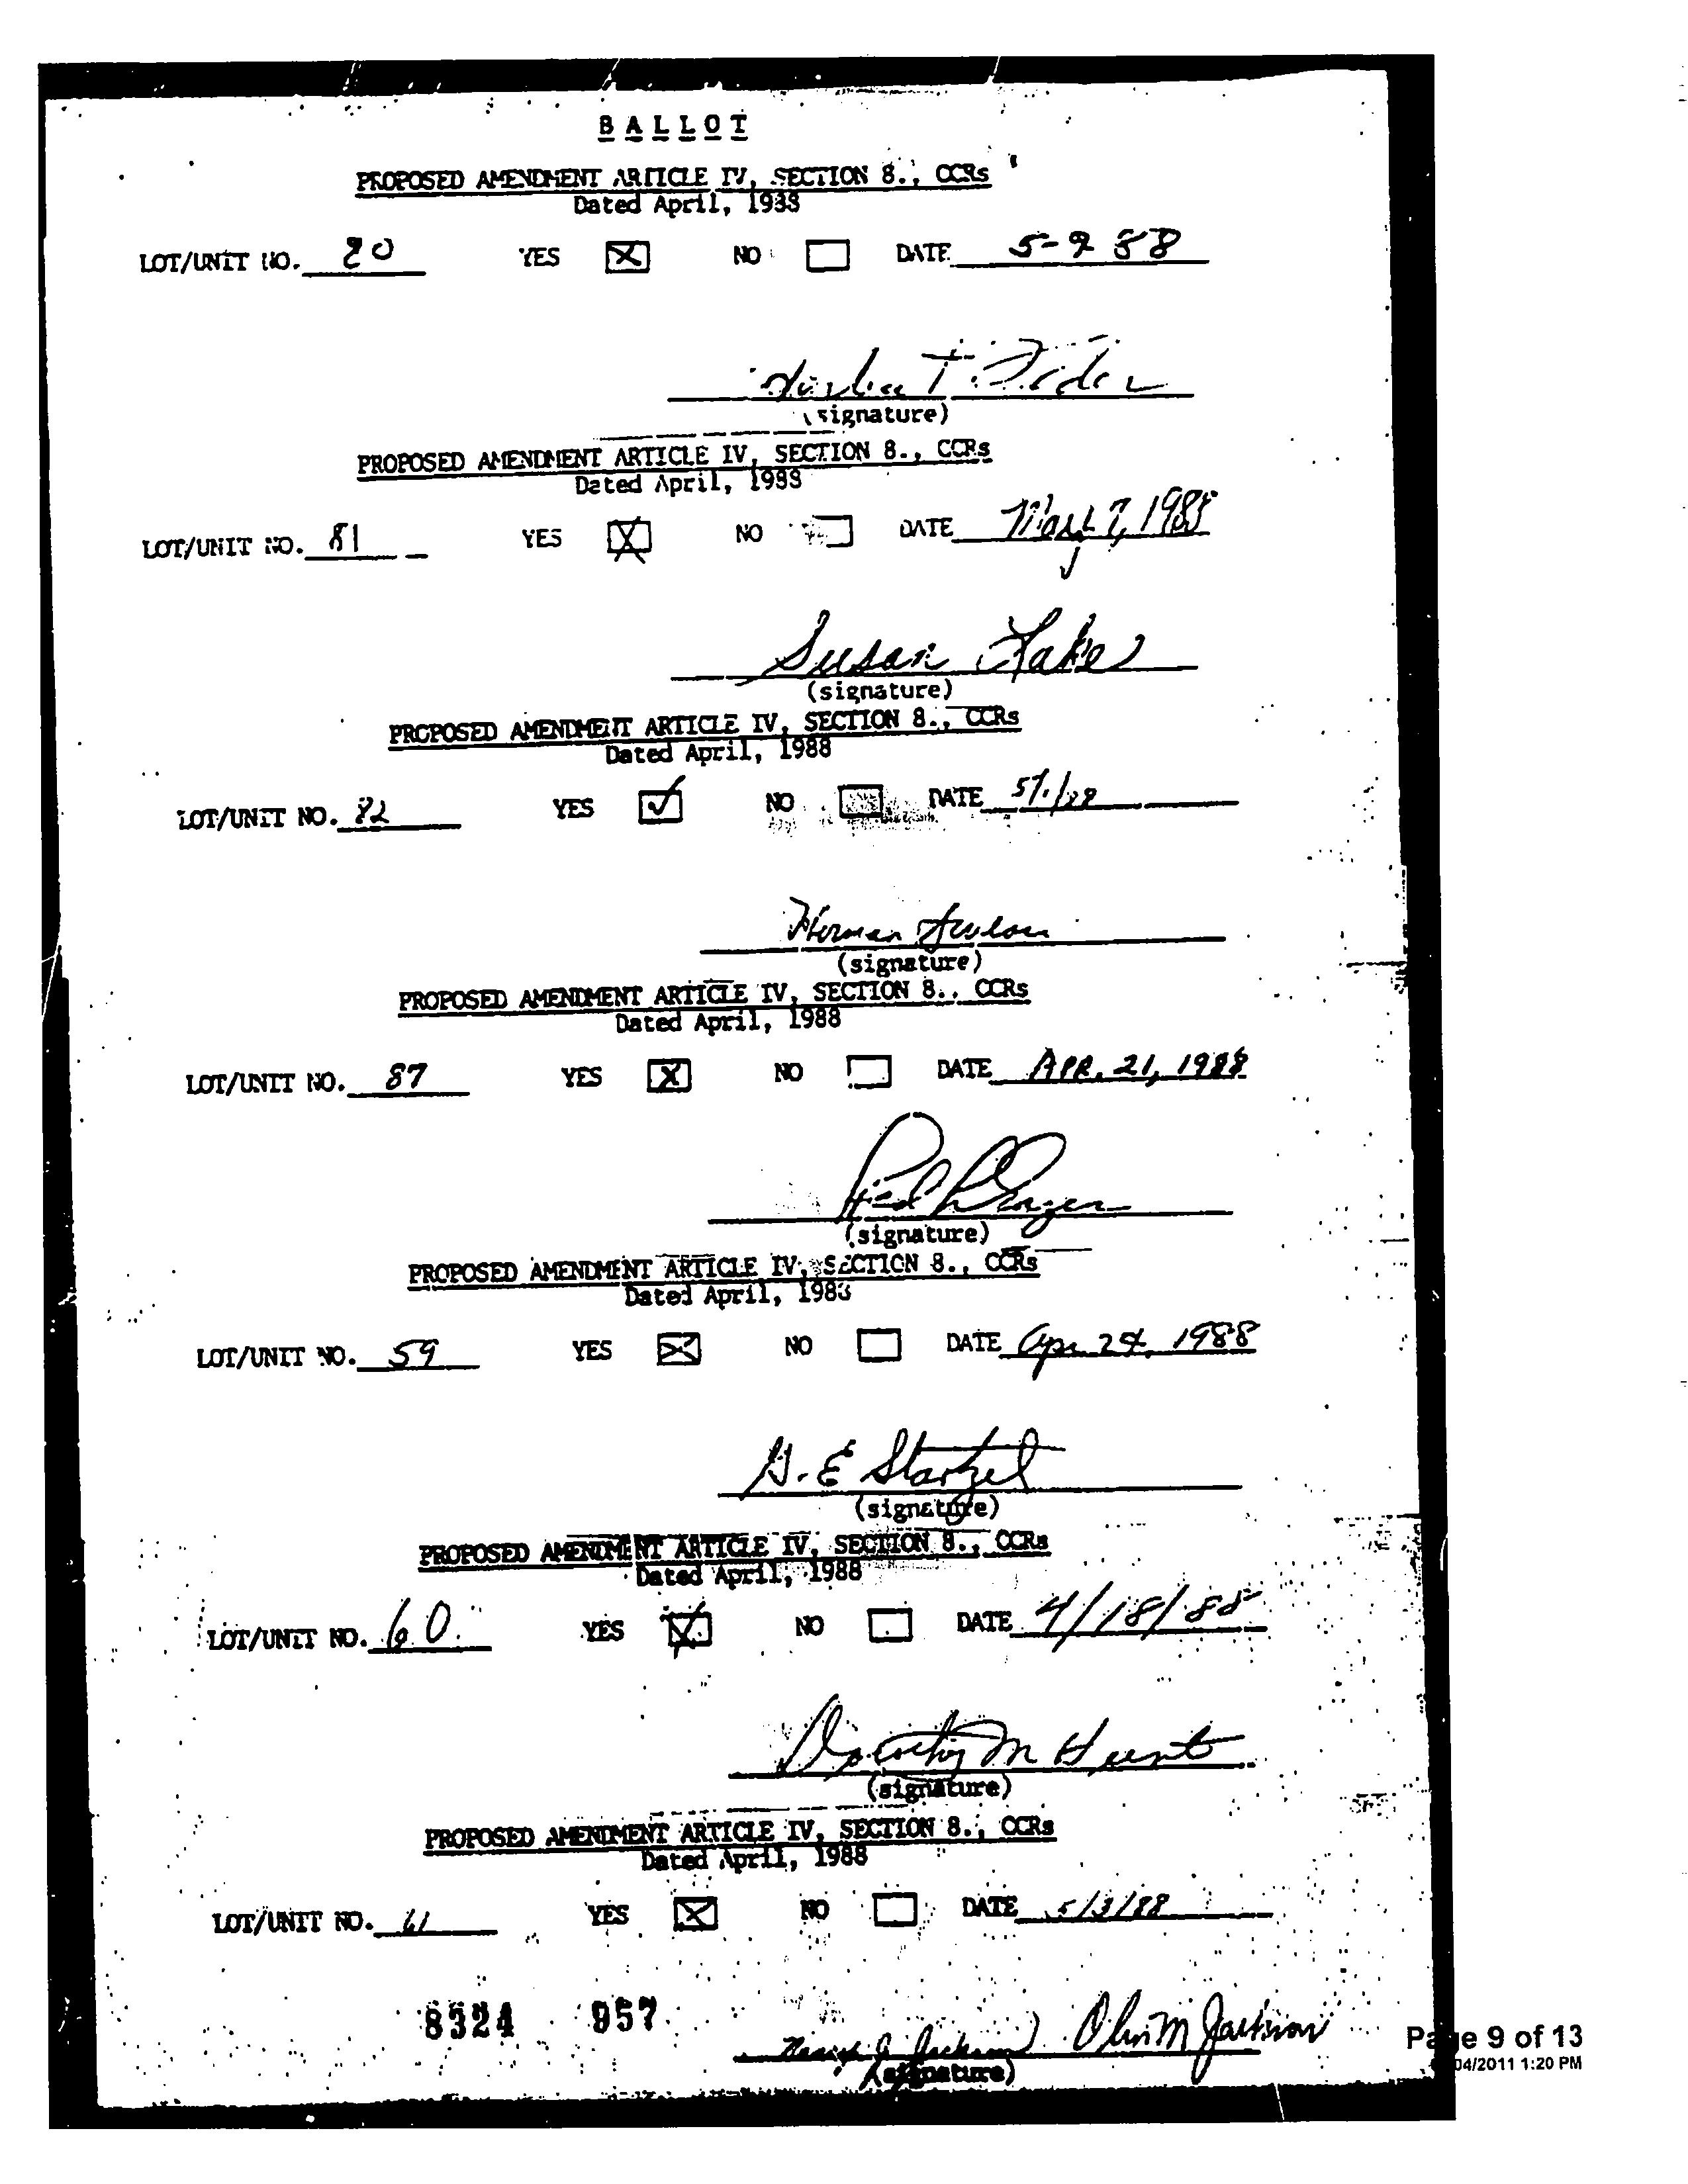 BALLOT
PROPOSED AMENDMENT ARTICLE IV, SECTION 8., CCRs
Dated April, 1988
LOT/UNIT NO. 80 YES [X] NO [ ] DATE 5-9 88
(signature)
PROPOSED AMENDMENT ARTICLE IV, SECTION 8., CCRs
Dated April, 1988
LOT/UNIT NO. 81 YES [X] NO [ ] DATE May 7, 1988
Susan Lake
(signature)
PROPOSED AMENDMENT ARTICLE IV, SECTION 8., CCRs
Dated April, 1988
LOT/UNIT NO. 82 YES [✓] NO [ ] DATE 5/1/88
Herman
(signature)
PROPOSED AMENDMENT ARTICLE IV, SECTION 8., CCRs
Dated April, 1988
LOT/UNIT NO. 87 YES [X] NO [ ] DATE APR. 21, 1988
(signature)
PROPOSED AMENDMENT ARTICLE IV, SECTION 8., CCRs
Dated April, 1988
LOT/UNIT NO. 59 YES [X] NO [ ] DATE Apr 24, 1988
E Startzel
(signature)
PROPOSED AMENDMENT ARTICLE IV, SECTION 8., CCRs
Dated April, 1988
LOT/UNIT NO. 60 YES [X] NO [ ] DATE 4/18/88
Dorothy M Hunt
(signature)
PROPOSED AMENDMENT ARTICLE IV, SECTION 8., CCRs
Dated April, 1988
LOT/UNIT NO. 61 YES [X] NO [ ] DATE 5/3/88
8324 957
Jackson
(signature)
Page 9 of 13
04/2011 1:20 PM